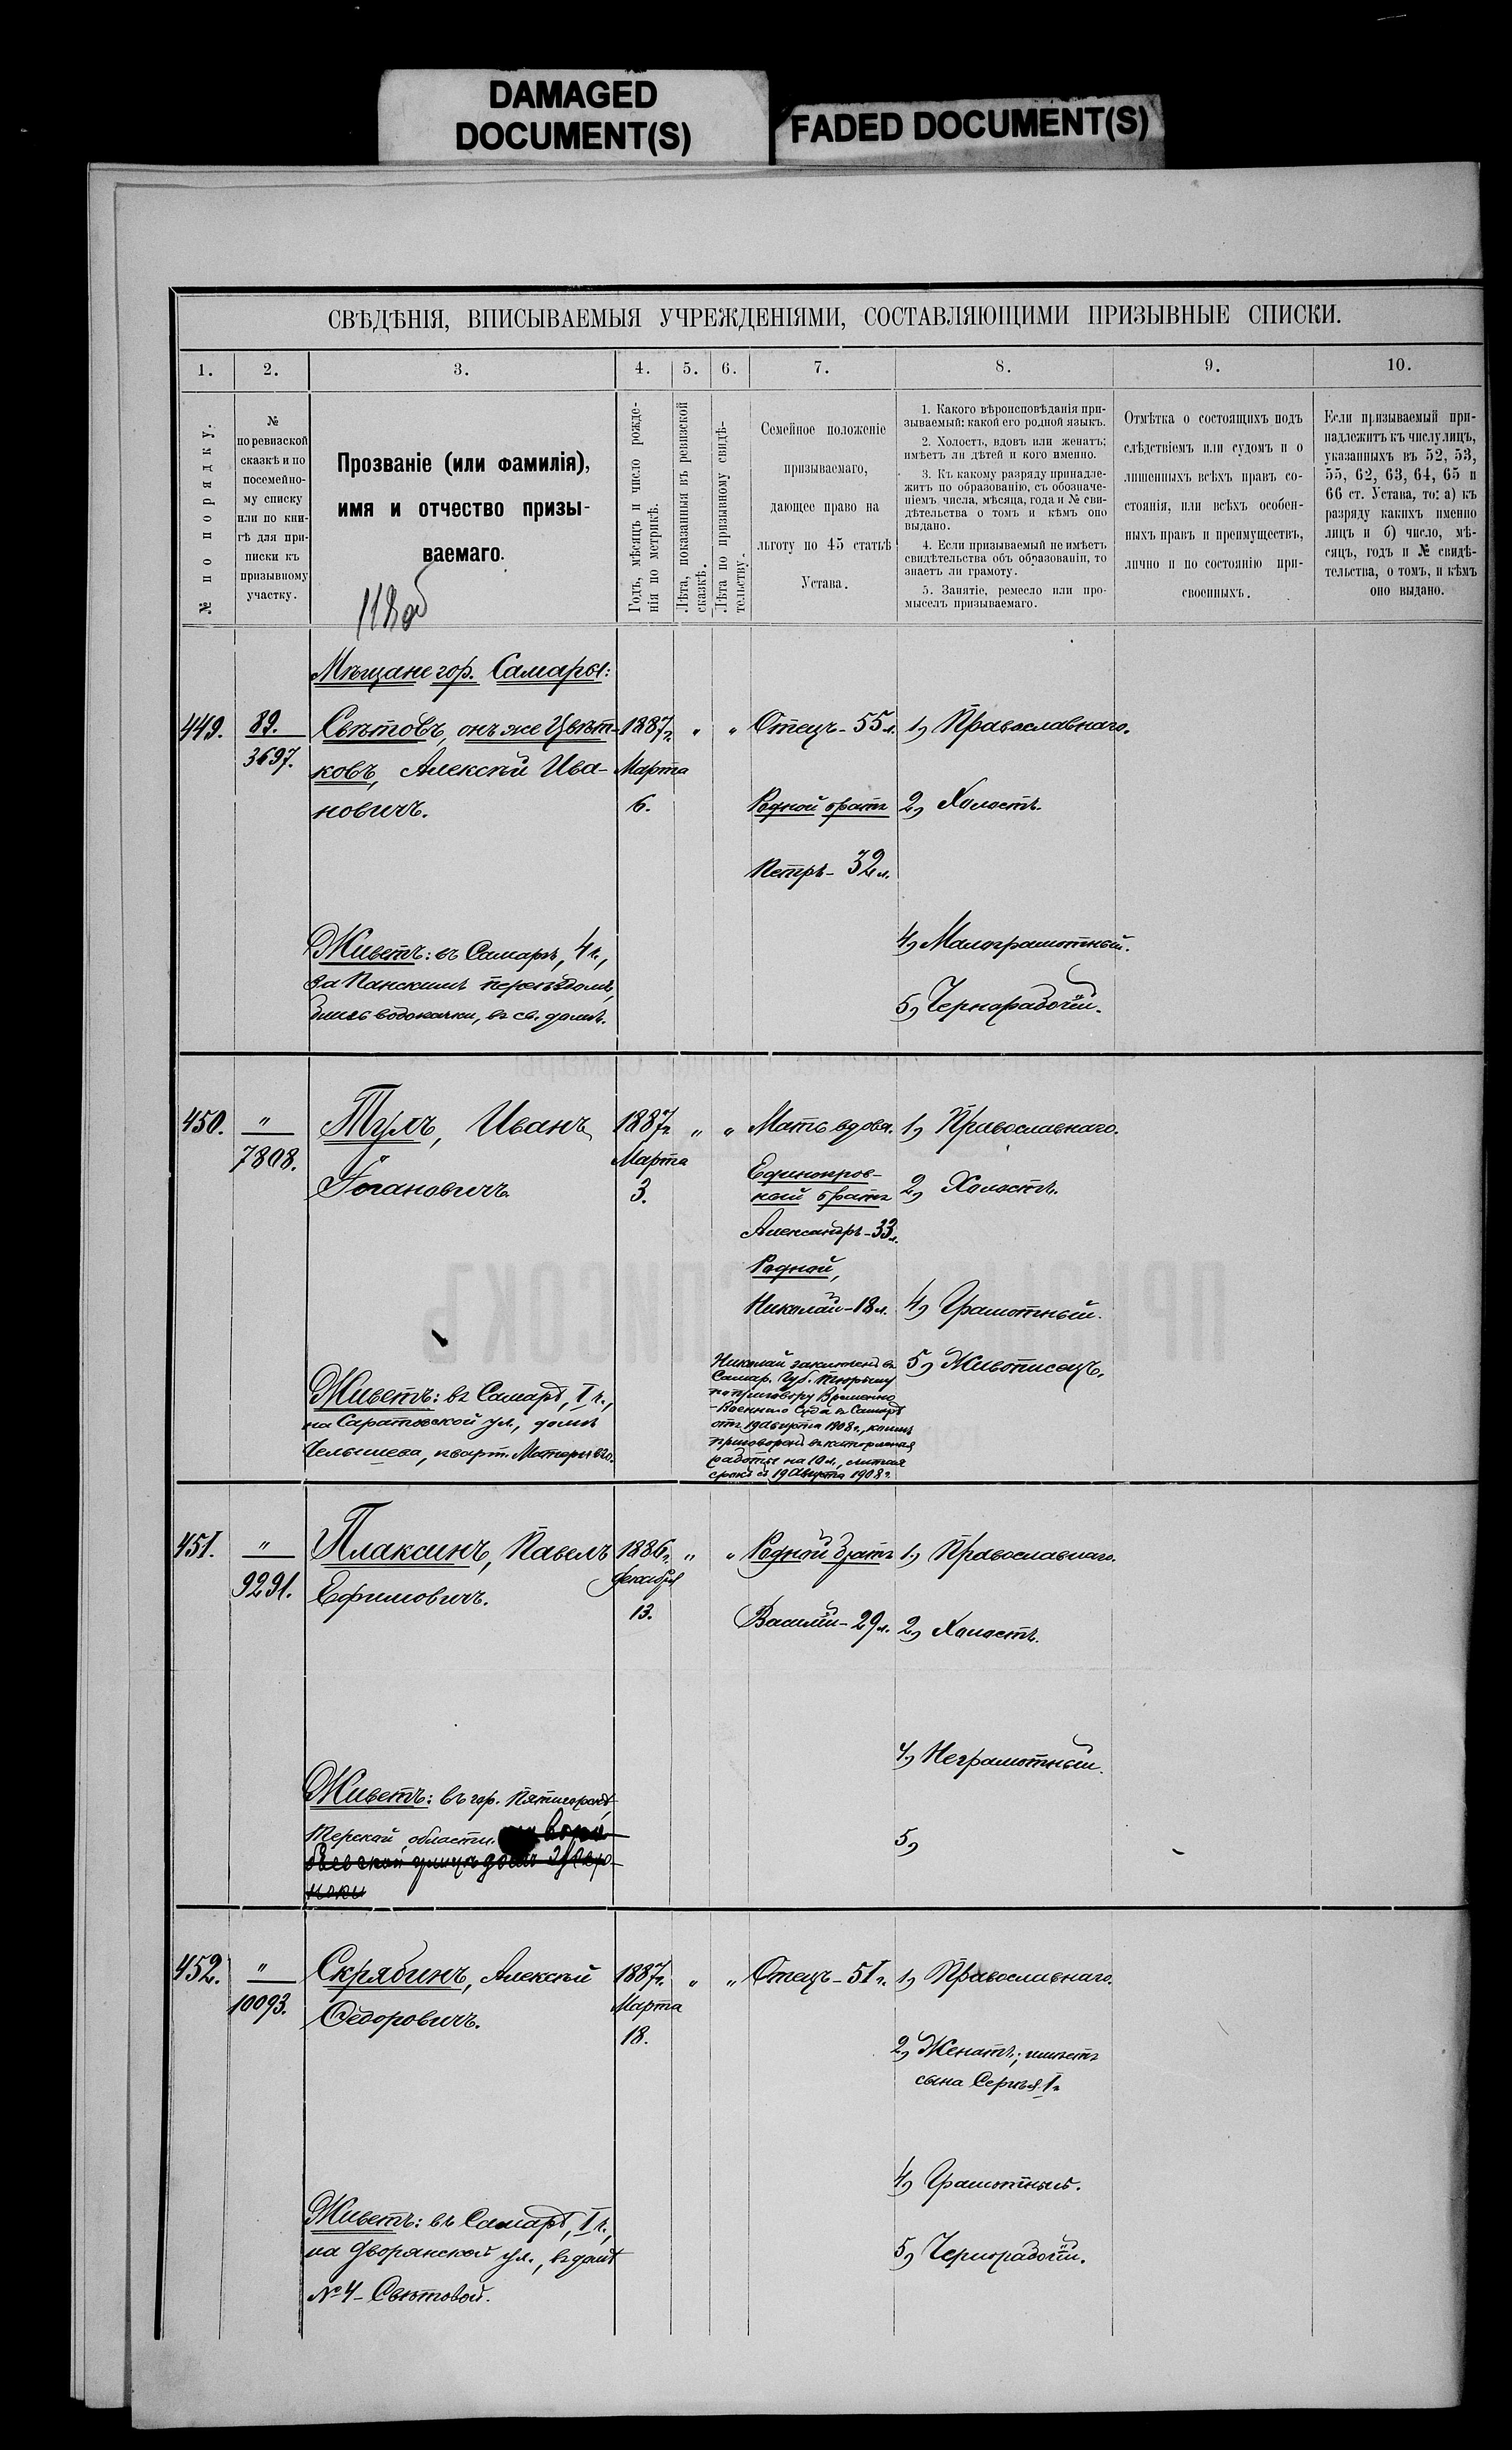 DAMAGED
DOCUMENT(S)
FADED DOCUMENT(S)
СВѢДѢНІЯ, ВПИСЫВАЕМЫЯ УЧРЕЖДЕНІЯМИ, СОСТАВЛЯЮЩИМИ ПРИЗЫВНЫЕ СПИСКИ.
1. 2. 3. 4. 5. 6. 7. 8. 9. 10.
№ по порядку.
№
по ревизской
сказкѣ и по
посемейно-
му списку
или по кни-
гѣ для при-
писки къ
призывному
участку.
Прозваніе (или фамилія),
имя и отчество призы-
ваемаго.
118об
Годъ, мѣсяцъ и число рожде-
нія по метрикѣ.
Лѣта, показанныя въ ревизской
сказкѣ.
Лѣта по призывному свидѣ-
тельству.
Семейное положеніе
призываемаго,
дающее право на
льготу по 45 статьѣ
Устава.
1. Какого вѣроисповѣданія при-
зываемый: какой его родной языкъ.
2. Холостъ, вдовъ или женатъ;
имѣетъ ли дѣтей и кого именно.
3. Къ какому разряду принадле-
житъ по образованію, съ обозначе-
ніемъ числа, мѣсяца, года и № сви-
дѣтельства о томъ и кѣмъ оно
выдано.
4. Если призываемый не имѣетъ
свидѣтельства объ образованіи, то
знаетъ ли грамоту.
5. Занятіе, ремесло или про-
мыселъ призываемаго.
Отмѣтка о состоящихъ подъ
слѣдствіемъ или судомъ и о
лишенныхъ всѣхъ правъ со-
стоянія, или всѣхъ особен-
ныхъ правъ и преимуществъ,
лично и по состоянію при-
своенныхъ.
Если призываемый при-
надлежитъ къ числу лицъ,
указанныхъ въ 52, 53,
55, 62, 63, 64, 65 и
66 ст. Устава, то: а) къ
разряду какихъ именно
лицъ и б) число, мѣ-
сяцъ, годъ и № свидѣ-
тельства, о томъ, и кѣмъ
оно выдано.
Мѣщане гор. Самары:
449.
89.
3697.
Свѣтовъ, онъ же Цвѣт-
ковъ, Алексѣй Ива-
новичъ.
Живетъ: въ Самарѣ, 4 ч.,
за Панскимъ переѣздомъ,
близъ водокачки, въ св. домѣ.
1887 г.
Марта
6.
" "
Отецъ - 55 л.
Родной братъ
Петръ - 32 л.
1) Православнаго.
2) Холостъ.
4) Малограмотный.
5) Чернорабочій.
450.
"
7808.
Тулъ, Иванъ
Іогановичъ
Живетъ: въ Самарѣ, I ч.,
на Саратовской ул., домъ
Челышева, кварт. Матери его.
1887 г.
Марта
3.
" "
Мать вдова.
Единокров-
ный братъ
Александръ - 33 л.
Родной,
Николай - 18 л.
Николай заключенъ въ
Самар. Губ. тюрьму
по приговору Временно
-Военнаго Суда въ Самарѣ
отъ 19 августа 1908 г., коимъ
приговоренъ въ каторжныя
работы на 10 л., считая
срокъ съ 19 Августа 1908 г.
1) Православнаго.
2) Холостъ.
4) Грамотный.
5) Живописецъ.
451.
"
9291.
Плаксинъ, Павелъ
Ефимовичъ.
Живетъ: въ гор. Пятигорскѣ,
Терской области.
1886 г.
Декабря
13.
" "
Родной братъ
Василій - 29 л.
1) Православнаго.
2) Холостъ.
4) Неграмотный.
5)
452.
"
10093.
Скрябинъ, Алексѣй
Ѳедоровичъ.
Живетъ: въ Самарѣ, I ч.,
на Дворянской ул., въ домѣ
№ 4 - Свѣтовой.
1887 г.
Марта
18.
" "
Отецъ - 51 г.
1) Православнаго.
2) Женатъ; имѣетъ
сына Сергѣя 1 г.
4) Грамотный.
5) Чернорабочій.